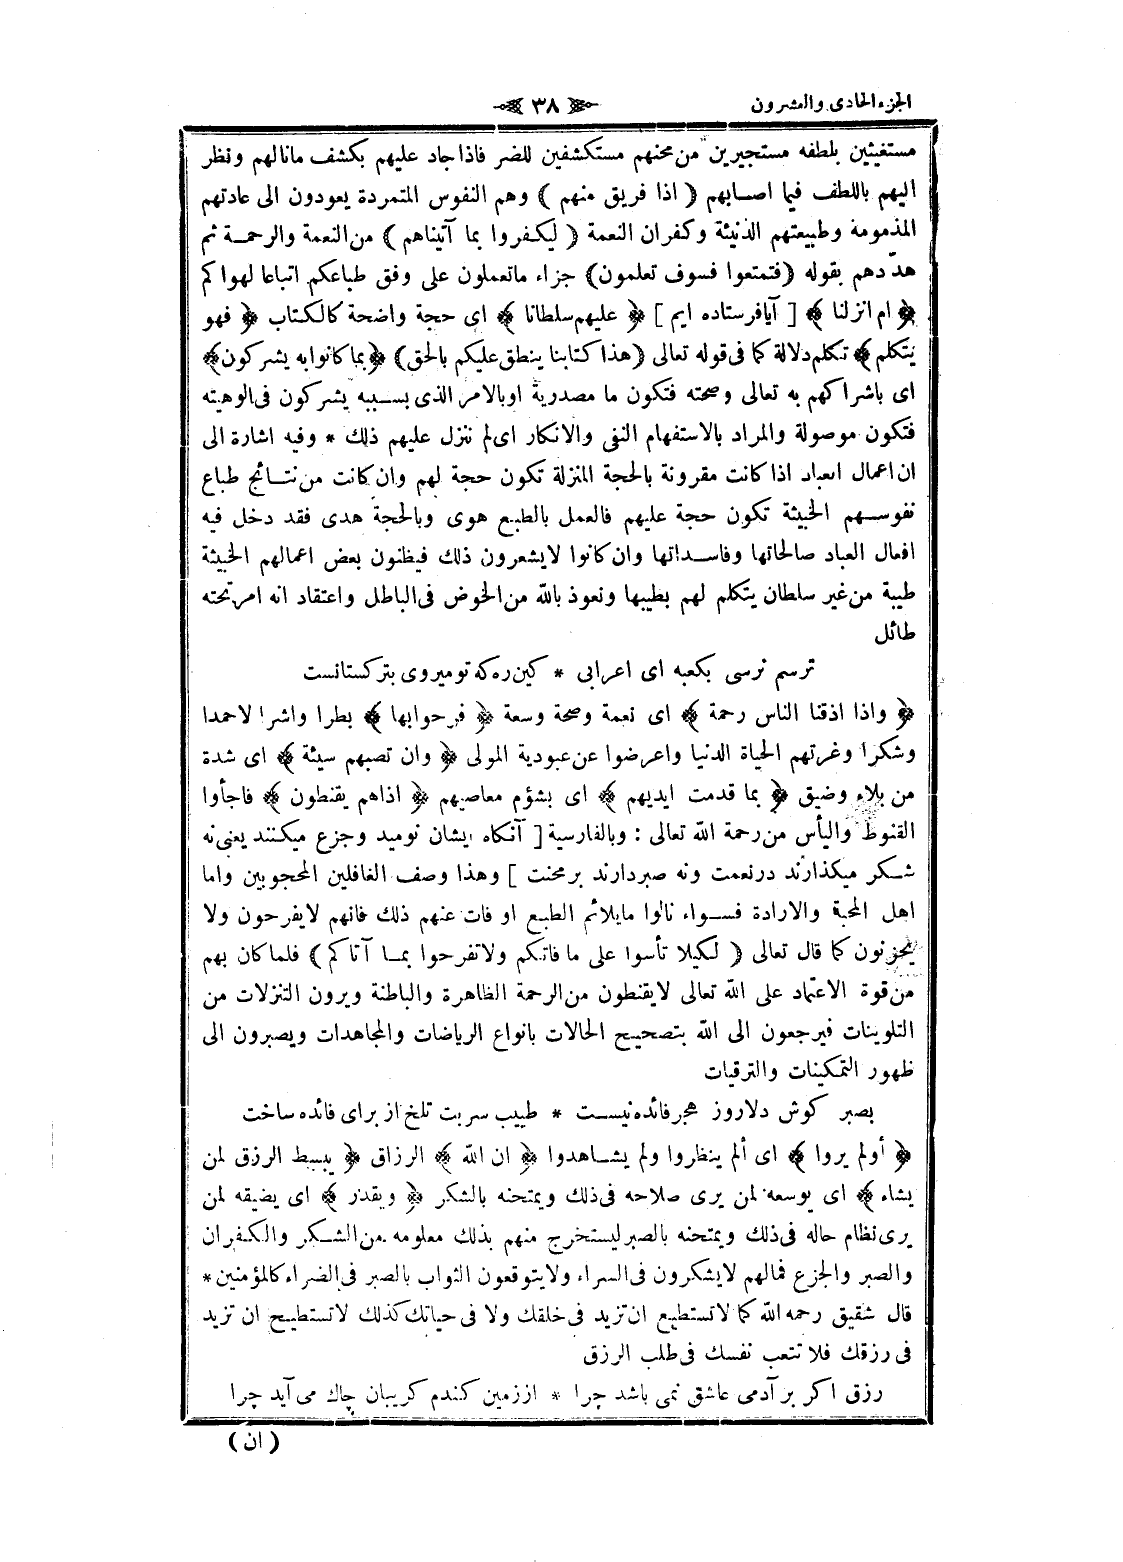 الجزء الحادى والعشرون ٣٨
مستغيثين بلطفه مستجيرين من محنهم مستكشفين للضر فاذا جاد عليهم بكشف مانالهم ونظر
اليهم باللطف فيما اصابهم ( اذا فريق منهم ) وهم النفوس المتمردة يعودون الى عادتهم
المذمومة وطبيعتهم الدنيئة وكفران النعمة ( ليكفروا بما آتيناهم ) من النعمة والرحمة ثم
هدّدهم بقوله (فتمتعوا فسوف تعلمون) جزاء ماتعملون على وفق طباعكم اتباعا لهواكم
﴿ ام انزلنا ﴾ [ آيافرستاده ايم ] ﴿ عليهم سلطانا ﴾ اى حجة واضحة كالكتاب ﴿ فهو
يتكلم ﴾ تكلم دلالة كما فى قوله تعالى (هذا كتابنا ينطق عليكم بالحق) ﴿بما كانوا به يشركون﴾
اى باشراكهم به تعالى وصحته فتكون ما مصدرية اوبالامر الذى بسببه يشركون فى الوهيته
فتكون موصولة والمراد بالاستفهام النفى والانكار اى لم ننزل عليهم ذلك * وفيه اشارة الى
ان اعمال العباد اذا كانت مقرونة بالحجة المنزلة تكون حجة لهم وان كانت من نتائج طباع
نفوسهم الخبيثة تكون حجة عليهم فالعمل بالطبع هوى وبالحجة هدى فقد دخل فيه
افعال العباد صالحاتها وفاسداتها وان كانوا لايشعرون ذلك فيظنون بعض اعمالهم الخبيثة
طيبة من غير سلطان يتكلم لهم بطيبها ونعوذ بالله من الخوض فى الباطل واعتقاد انه امر تحته
طائل
ترسم نرسى بكعبه اى اعرابى * كين ره كه تو ميروى بتركستانست
﴿ واذا اذقنا الناس رحمة ﴾ اى نعمة وصحة وسعة ﴿ فرحوابها ﴾ بطرا واشرا لاحمدا
وشكرا وغرتهم الحياة الدنيا واعرضوا عن عبودية المولى ﴿ وان تصبهم سيئة ﴾ اى شدة
من بلاء وضيق ﴿ بما قدمت ايديهم ﴾ اى بشؤم معاصيهم ﴿ اذاهم يقنطون ﴾ فاجأوا
القنوط واليأس من رحمة الله تعالى : وبالفارسية [ آنكاه ايشان نوميد وجزع ميكنند يعنى نه
شكر ميكذارند درنعمت ونه صبر دارند بر محنت ] وهذا وصف الغافلين المحجوبين واما
اهل المحبة والارادة فسواء نالوا مايلائم الطبع او فات عنهم ذلك فانهم لايفرحون ولا
يحزنون كما قال تعالى ( لكيلا تأسوا على ما فاتكم ولاتفرحوا بما آتاكم ) فلما كان بهم
من قوة الاعتماد على الله تعالى لايقنطون من الرحمة الظاهرة والباطنة ويرون التنزلات من
التلوينات فيرجعون الى الله بتصحيح الحالات بانواع الرياضات والمجاهدات ويصبرون الى
ظهور التمكينات والترقيات
بصبر كوش دلاروز هجر فائده نيست * طبيب سربت تلخ از براى فائده ساخت
﴿ أولم يروا ﴾ اى ألم ينظروا ولم يشاهدوا ﴿ ان الله ﴾ الرزاق ﴿ يبسط الرزق لمن
يشاء ﴾ اى يوسعه لمن يرى صلاحه فى ذلك ويمتحنه بالشكر ﴿ ويقدر ﴾ اى يضيقه لمن
يرى نظام حاله فى ذلك ويمتحنه بالصبر ليستخرج منهم بذلك معلومه من الشكر والكفران
والصبر والجزع فمالهم لايشكرون فى السراء ولايتوقعون الثواب بالصبر فى الضراء كالمؤمنين *
قال شقيق رحمه الله كما لاتستطيع ان تزيد فى خلقك ولا فى حياتك كذلك لاتستطيع ان تزيد
فى رزقك فلا تتعب نفسك فى طلب الرزق
رزق اكر بر آدمى عاشق نمى باشد چرا * اززمين كندم كريبان چاك مى آيد چرا
( ان )